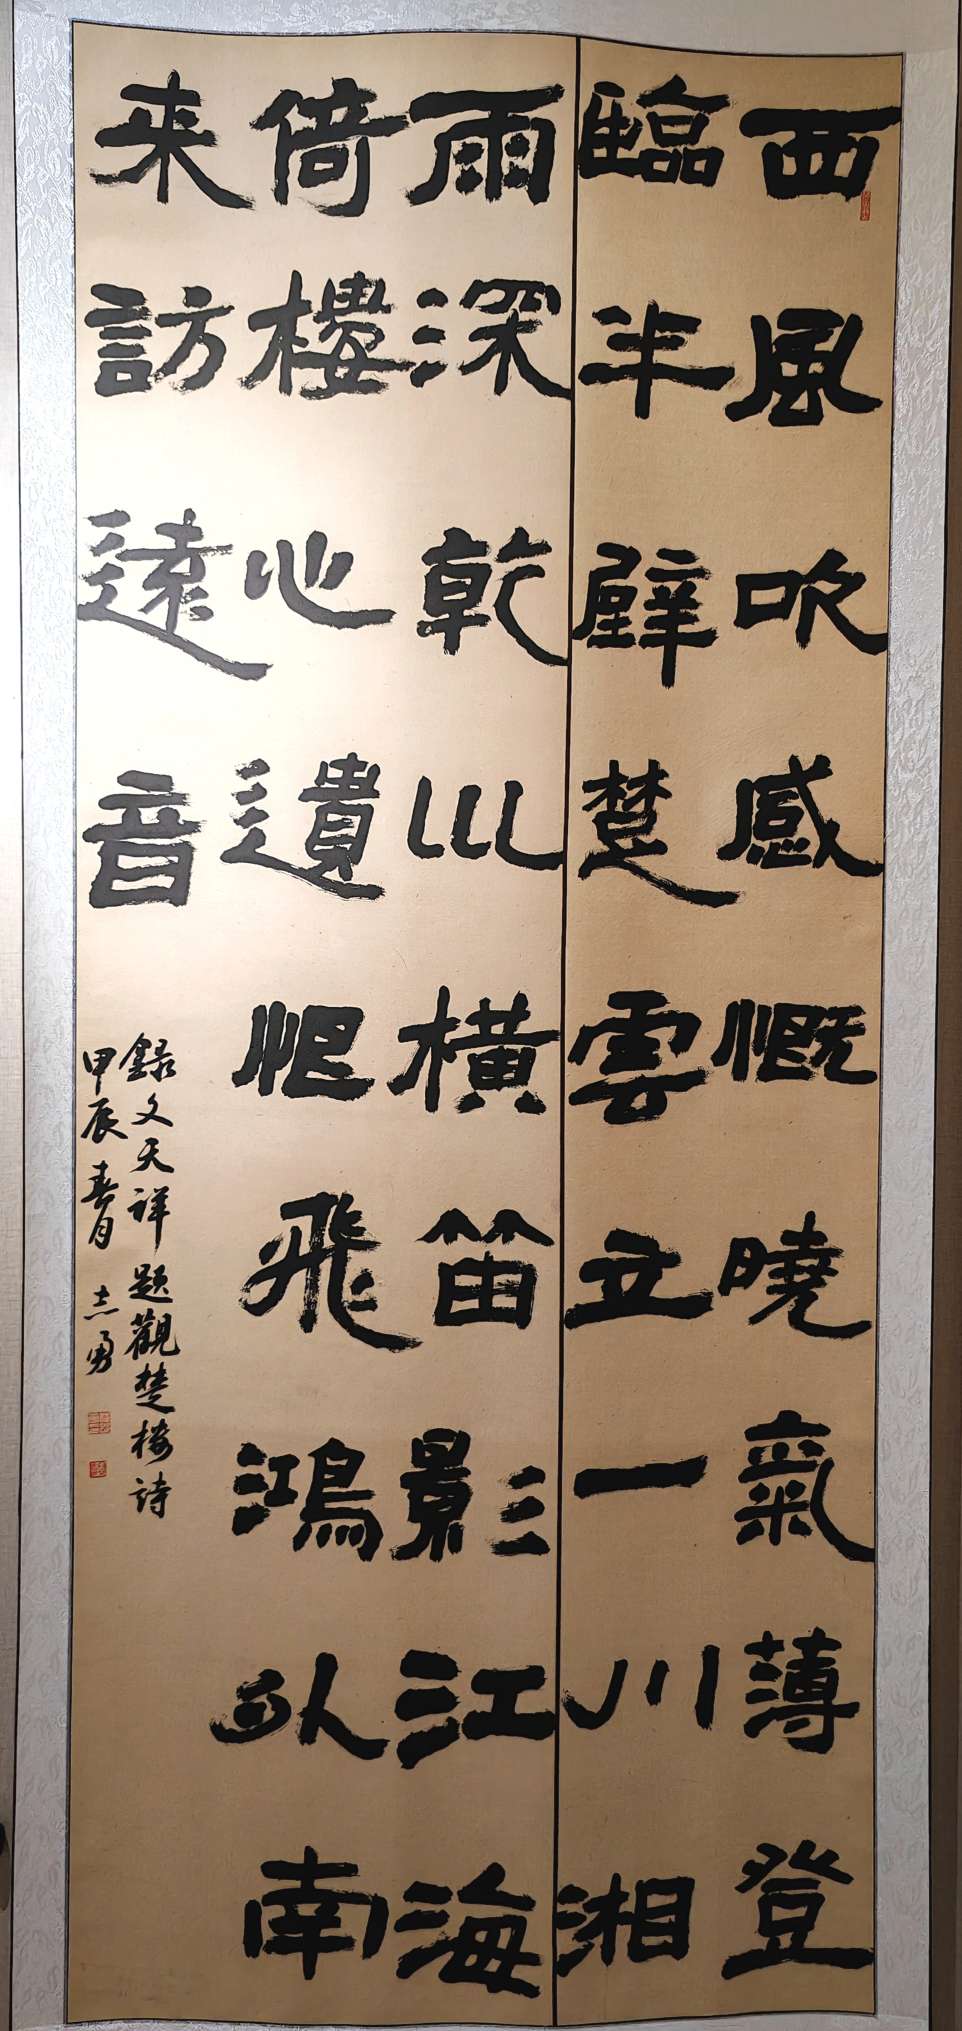 西風吹感慨曉氣薄登
臨半壁楚雲立一川湘
雨深乾坤橫笛影江海
倚樓心遺恨飛鴻外南
来訪遠音
錄文天祥題觀楚樓詩
甲辰春月志勇